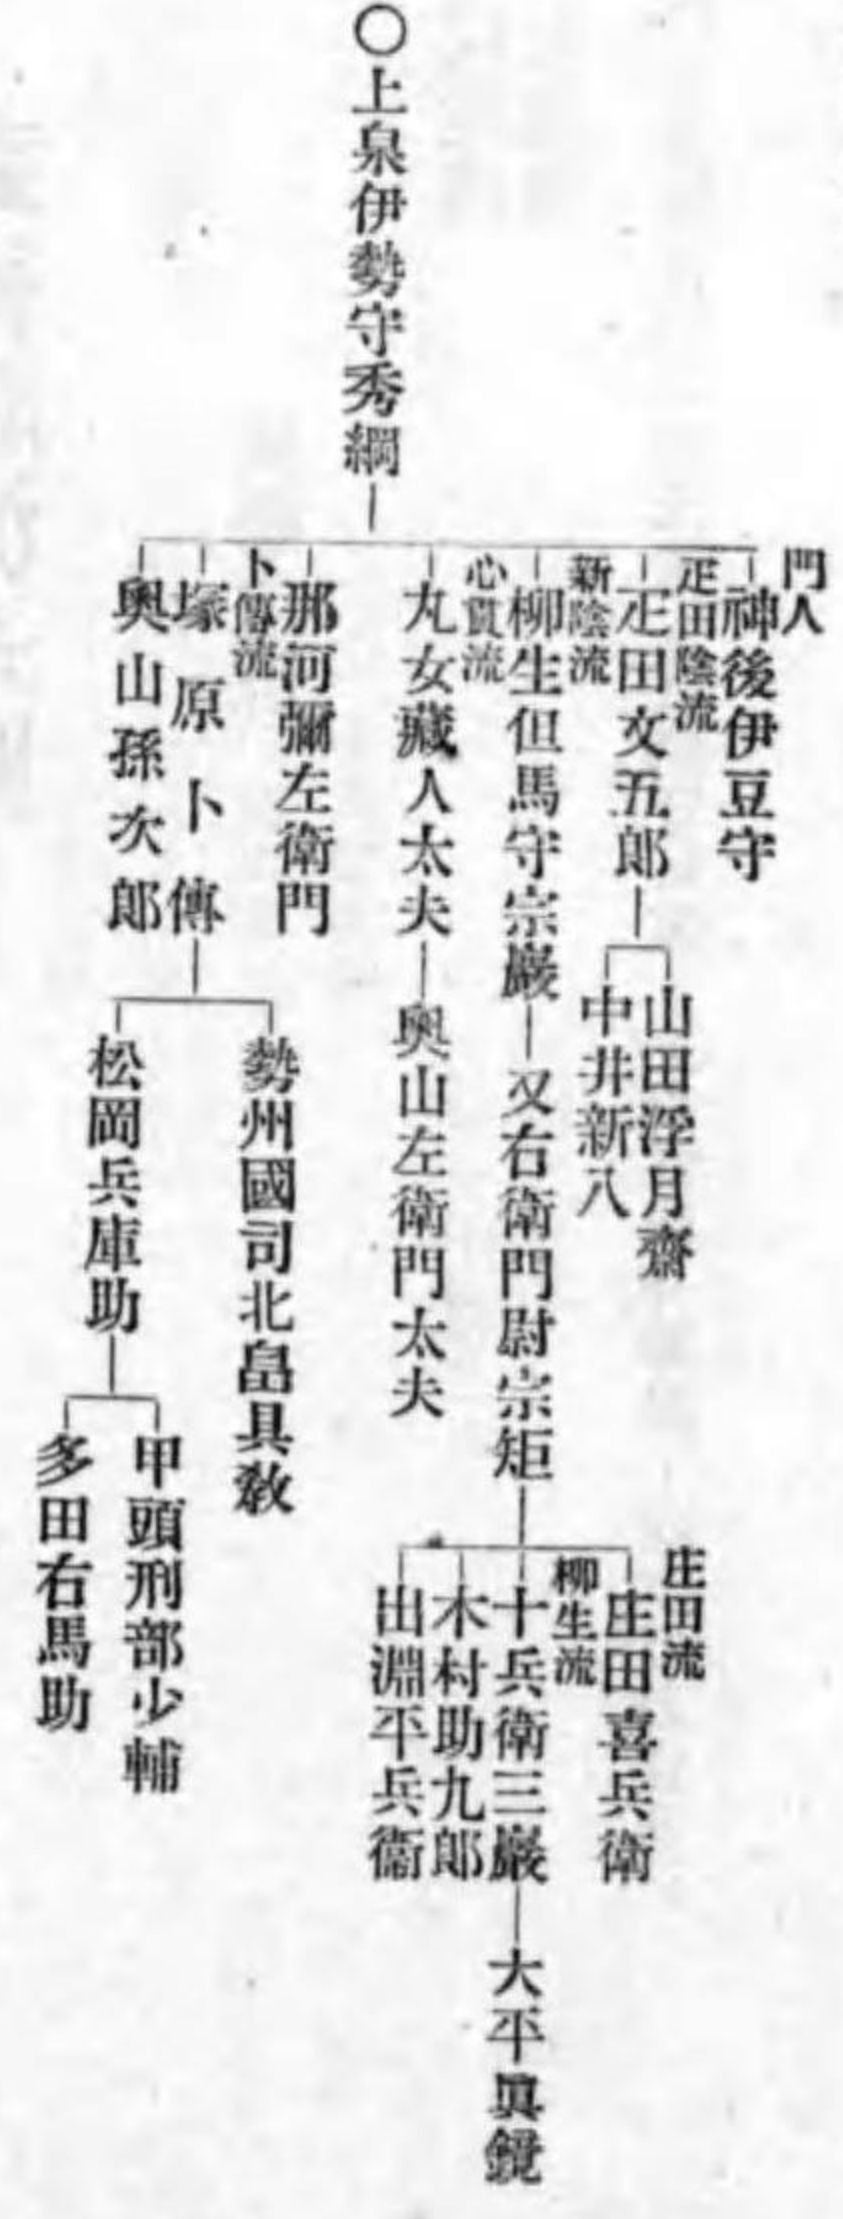 ○上泉伊勢守秀綱
門人
神後伊豆守
疋田陰流
疋田文五郎
山田浮月齋
中井新八
新陰流
柳生但馬守宗巖
又右衛門尉宗矩
庄田流
庄田喜兵衛
柳生流
十兵衛三巖
大平眞鏡
木村助九郎
出淵平兵衞
心貫流
丸女藏人太夫
奥山左衛門太夫
那河彌左衛門
卜傳流
塚原卜傳
勢州國司北畠具敎
松岡兵庫助
甲頭刑部少輔
多田右馬助
奥山孫次郎